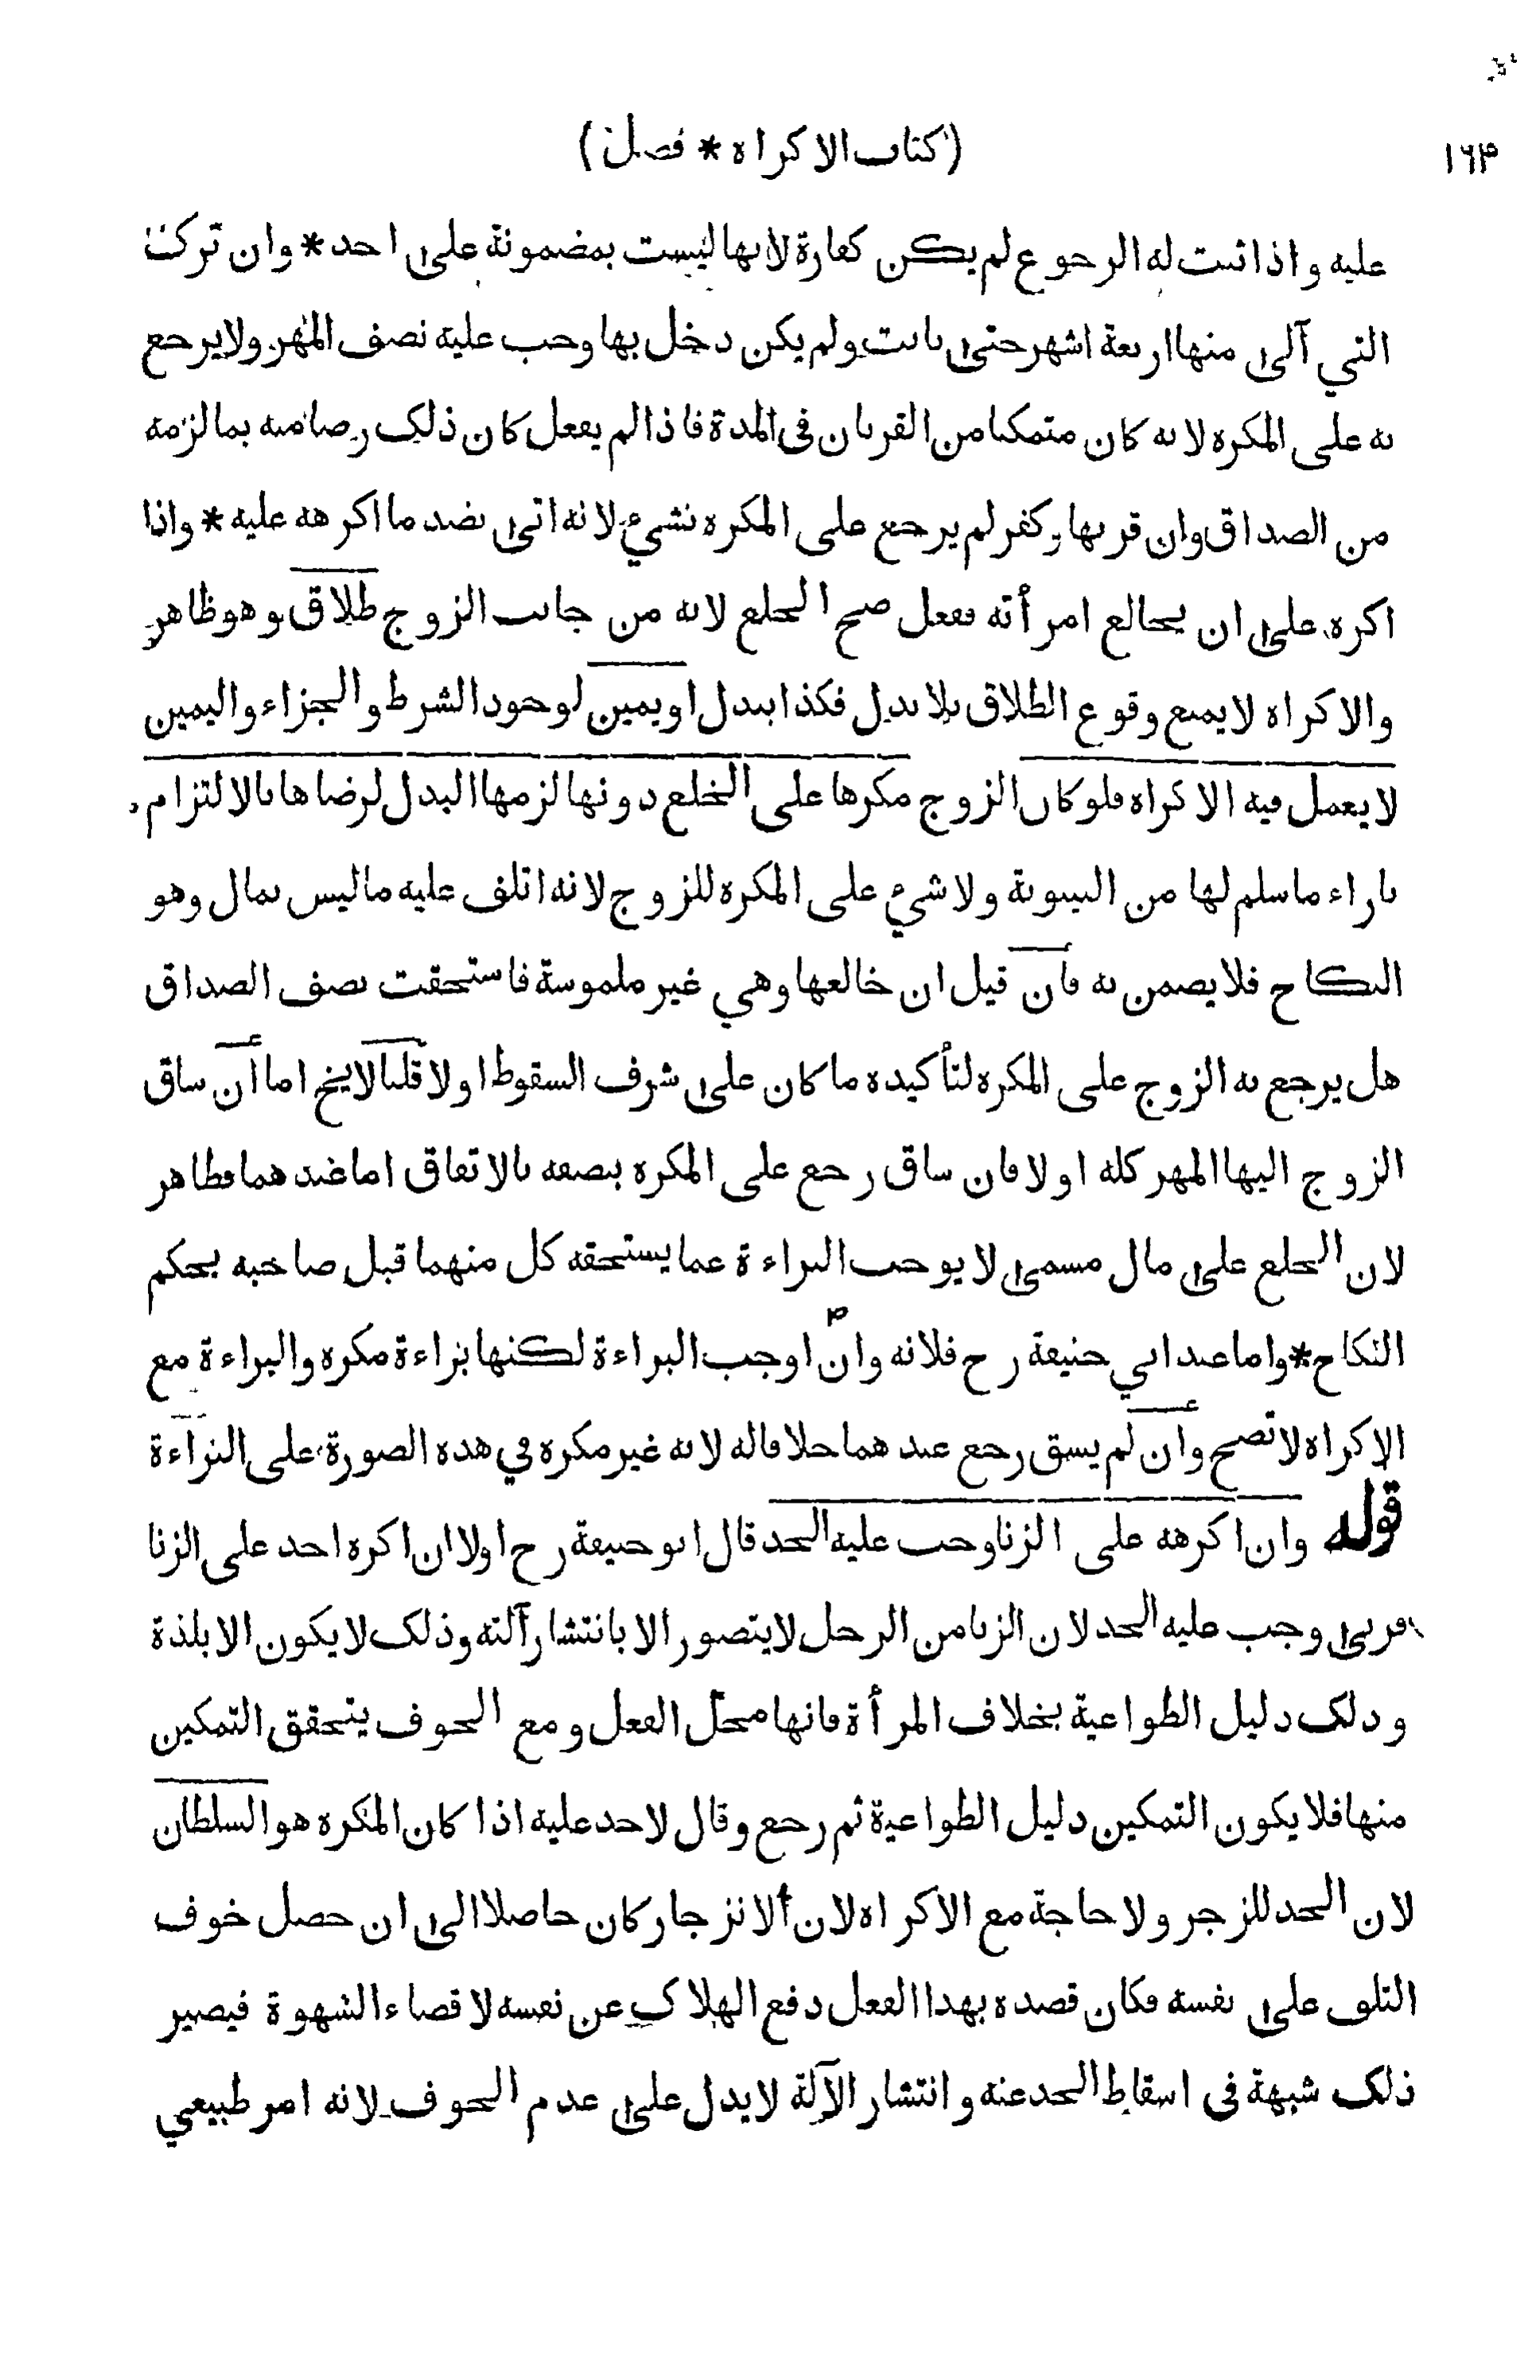 ١٦٣
(كتاب الاكراه * فصل)
عليه واذا ثبت له الرجوع لم يكن كفارة لانها ليست بمضمونة على احد * وان تركت
التي آلى منها اربعة اشهر حتى بانت ولم يكن دخل بها وجب عليه نصف المهر ولا يرجع
به على المكره لانه كان متمكنا من القربان في المدة فاذا لم يفعل كان ذلك رضا منه بما لزمه
من الصداق وان قربها وكفر لم يرجع على المكره بشيء لانه اتى بضد ما اكرهه عليه * واذا
اكره على ان يخالع امرأته ففعل صح الخلع لانه من جانب الزوج طلاق وهو ظاهر
والاكراه لا يمنع وقوع الطلاق بلا بدل فكذا ببدل او يمين لوجود الشرط والجزاء واليمين
لا يعمل فيه الاكراه فلو كان الزوج مكرها على الخلع دونها لزمها البدل لرضاها بالالتزام
بازاء ما سلم لها من البينونة ولا شيء على المكره للزوج لانه اتلف عليه ما ليس بمال وهو
النكاح فلا يضمن به فأن قيل ان خالعها وهي غير ملموسة فاستحقت نصف الصداق
هل يرجع به الزوج على المكره لتأكيده ما كان على شرف السقوط اولا قلنا لا يخ اما أن ساق
الزوج اليها المهر كله اولا فان ساق رجع على المكره بنصفه بالاتفاق اما عندهما فظاهر
لان الخلع على مال مسمى لا يوجب البراءة عما يستحقه كل منهما قبل صاحبه بحكم
النكاح * واما عند ابي حنيفة رح فلانه وان اوجب البراءة لكنها براءة مكره والبراءة مع
الاكراه لا تصح وأن لم يسق رجع عندهما خلافا له لانه غير مكره في هذه الصورة على البراءة
قوله وان اكرهه على الزنا وجب عليه الحد قال ابو حنيفة رح اولا ان اكره احد على الزنا
فزنى وجب عليه الحد لان الزنا من الرجل لا يتصور الا بانتشار آلته وذلك لا يكون الا بلذة
وذلك دليل الطواعية بخلاف المرأة فانها محل الفعل ومع الخوف يتحقق التمكين
منها فلا يكون التمكين دليل الطواعية ثم رجع وقال لا حد عليه اذا كان المكره هو السلطان
لان الحد للزجر ولا حاجة مع الاكراه لان الانزجار كان حاصلا الى ان حصل خوف
التلف على نفسه فكان قصده بهذا الفعل دفع الهلاك عن نفسه لا قضاء الشهوة فيصير
ذلك شبهة في اسقاط الحد عنه وانتشار الآلة لا يدل على عدم الخوف لانه امر طبيعي